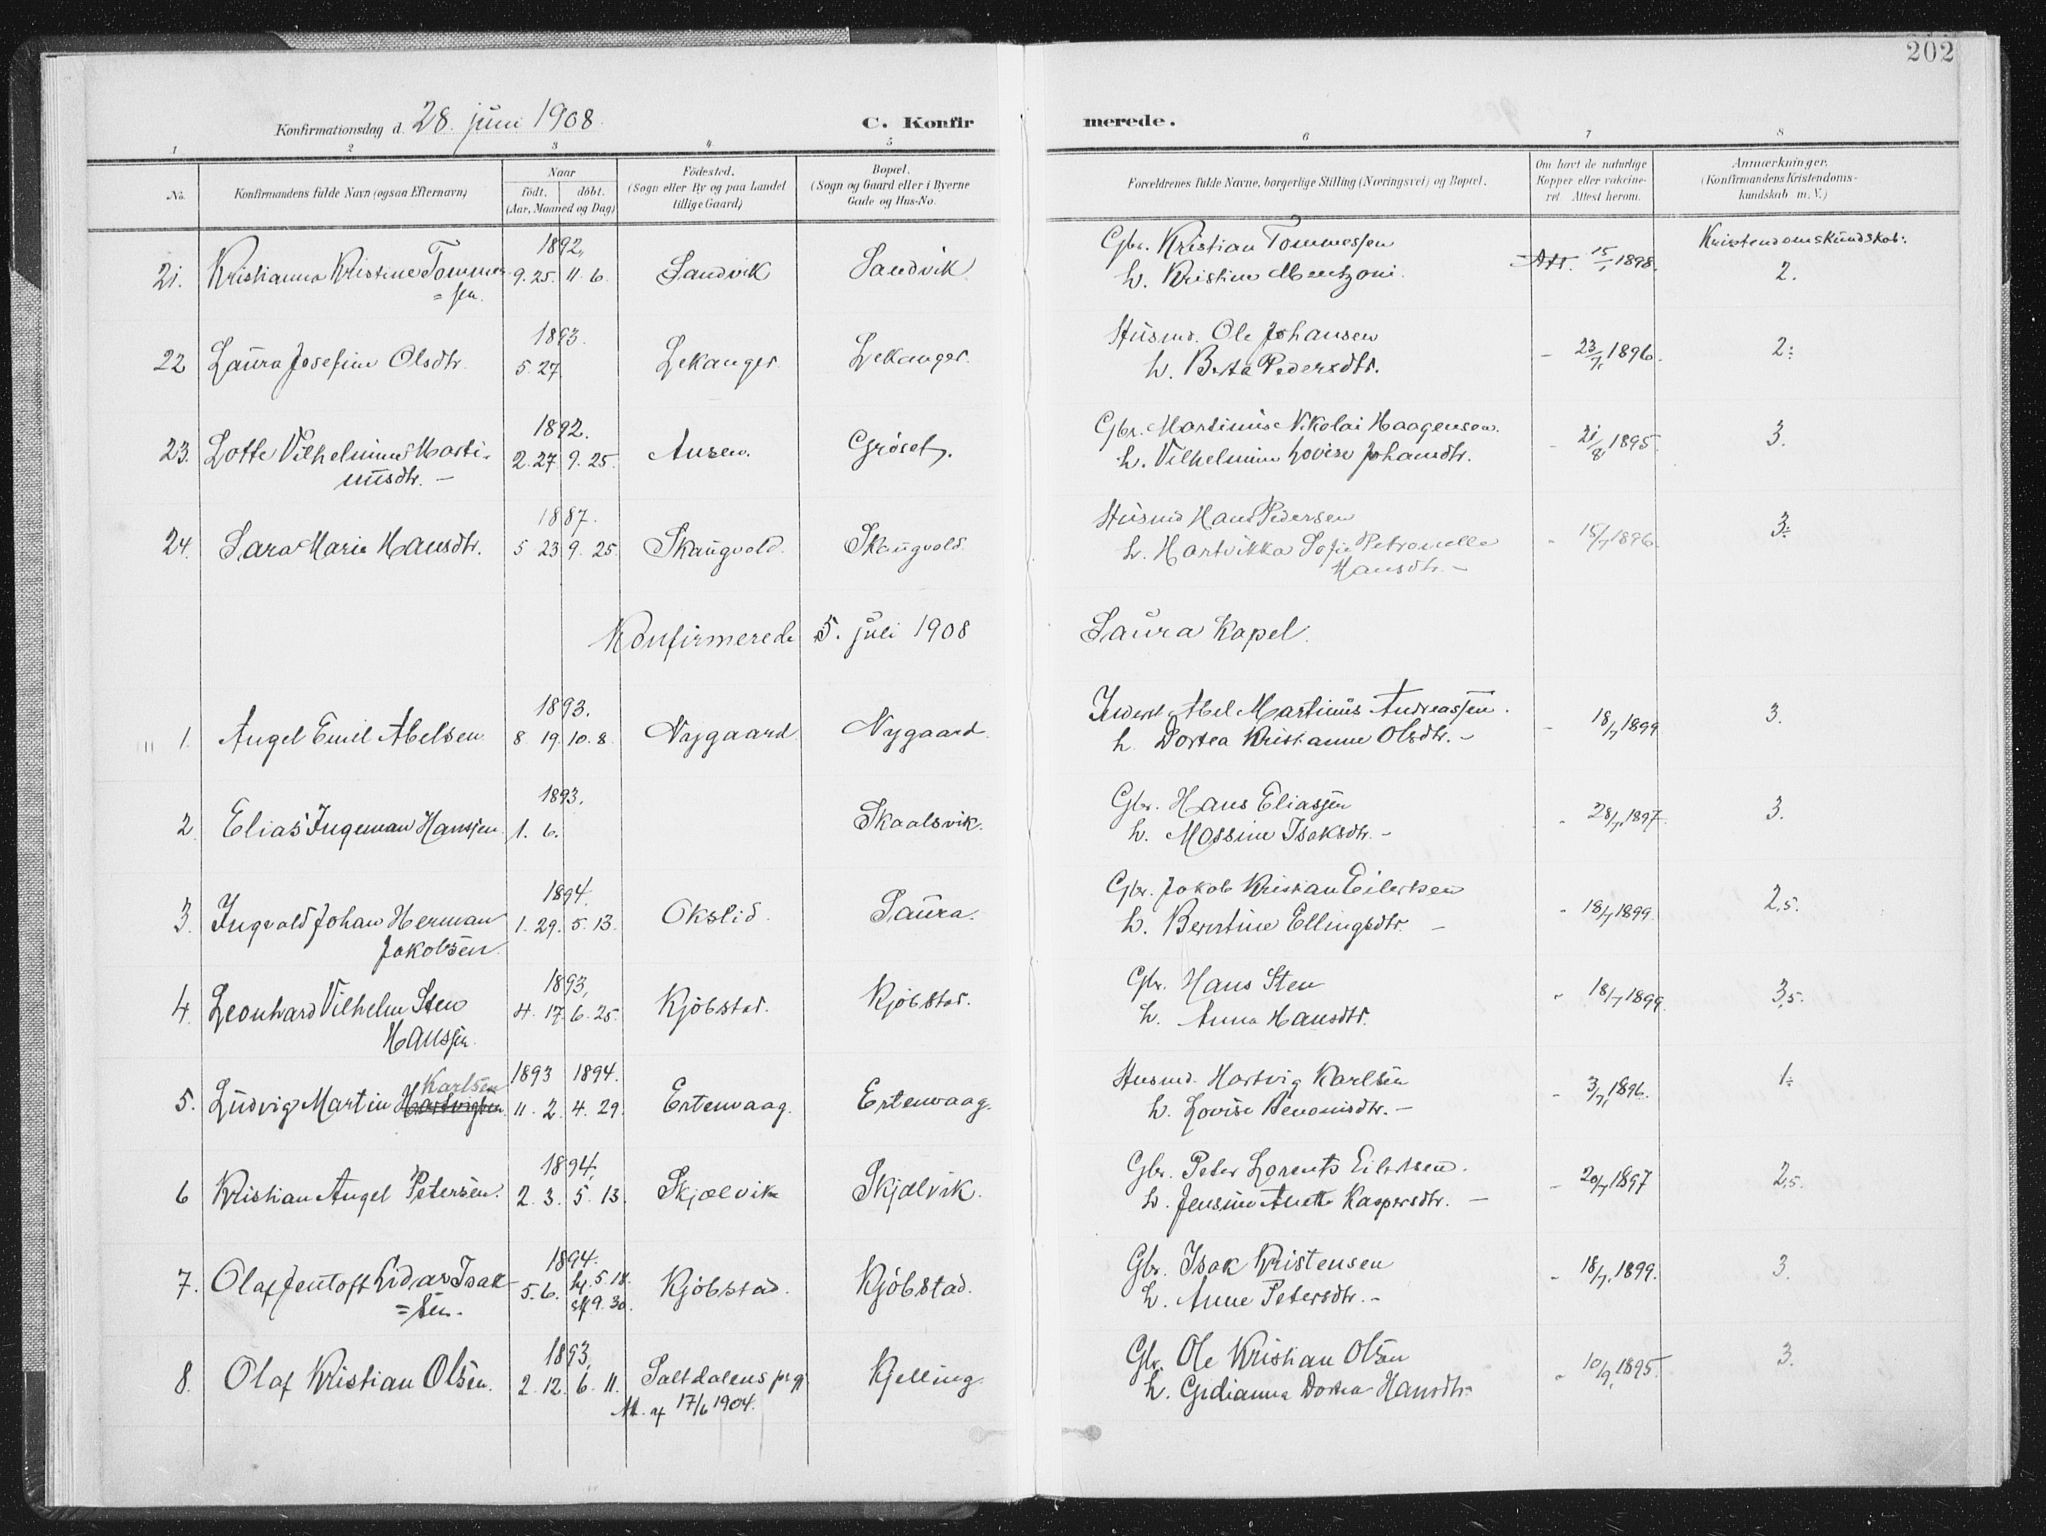 202
Konfirmationsdag d. 28. juni 1908. C. Konfirmerede.
1 2 3 4 5 6 7 8
No. Konfirmandens fulde Navn (ogsaa Efternavn) Naar født, døbt. (Aar, Maaned og Dag) Fødested. (Sogn eller By og paa Landet tillige Gaard) Bopæl. (Sogn og Gaard eller i Byerne Gade og Hus-No. Forældrenes fulde Navne, borgerlige Stilling (Næringsvei) og Bopæl. Om havt de naturlige Kopper eller vakcineret. Attest herom. Anmærkninger. (Konfirmandens Kristendomskundskab m. V.)
1892, Gbr. Kristian Tommessen Kristendomskundskab:
21. Kristianna Kristine Tommes 9. 25. 11. 6. Sandvik Sandvik h. Kristine Mentzoni. Att. 15/1 1898. 2.
=sen.
1893. Husmd. Ole Johansen
22 Laura Josefine Olsdtr. 5. 27 Lekanger Lekanger. h. Berta Pedersdtr. - 23/7, 1896. 2÷
1892. Gbr. Martinus Nikolai Haagensen.
23. Lotte Vilhelmine Marti- 2. 27 9. 25. Ausen. Grøset. h. Vilhelmine Lovise Johansdtr. - 21/8, 1895. 3.
nusdtr. -
1887. Husmd Hans Pedersen
24. Sara Marie Hansdtr. 5 23 9. 25. Skaugvold. Skaugvold. h. Hartvikka Sofie Petronelle - 15/7 1896. 3÷
Hansdtr. -
Konfirmerede 5. juli 1908 Saura Kapel.
1893. Abel Martinus Andreassen.
1. Angel Emil Abelsen 8 19. 10. 8. Nygaard Nygaard. h. Dortea Kristianne Olsdtr. - - 18/7 1899 3.
1893. Gbr. Hans Eliassen
2. Elias Ingeman Hanssen 1. 6. Skaalsvik. h. Massine Isaksdtr. - - 28/7, 1897. 3.
1894. Gbr. Jakob Kristian Eilertsen
3. Ingvald Johan Herman 1. 29. 5. 13. Okslid. Saura. h. Berntine Ellingsdtr. - - 18/7 1899. 2,5.
Jakobsen.
1893, Gbr. Hans Sten
4. Leonhard Vilhelm Sten 4. 17. 6. 25. Kjøbstad. Kjøbstad. h. Anna Hansdtr. - 18/7 1899. 3,5.
Hanssen.
Karlsen 1893 1894. Husmd. Hartvig Karlsen
5. Ludvig Martin Hartvigsen 11. 2. 4. 29. Ertenvaag. Ertenvaag. h. Lovise Benonisdtr. - - 3/7, 1896. 1÷
1894, Gbr. Peter Lorents Eilertsen.
6 Kristian Angel Petersen. 2. 3. 5. 13. Skjælvik Skjælvik. h. Jensine Anette Kaspersdtr. - - 20/7 1897 2,5.
1894. Gbr. Isak Kristensen
7. Olaf Jentoft Lidar Isak 5. 6. hj. 5. 18. Kjøbstad. Kjøbstad. h. Anne Petersdtr. - - 18/7, 1899. 3.
=sen. st. 9. 30.
1893, Gbr. Ole Kristian Olsen
8. Olaf Kristian Olsen. 2. 12. 6. 11. Saltdalens prgj. Kjelling h. Gidianna Dortea Hansdtr. - 10/9, 1895. 3.
Att. af 17/6 1904.